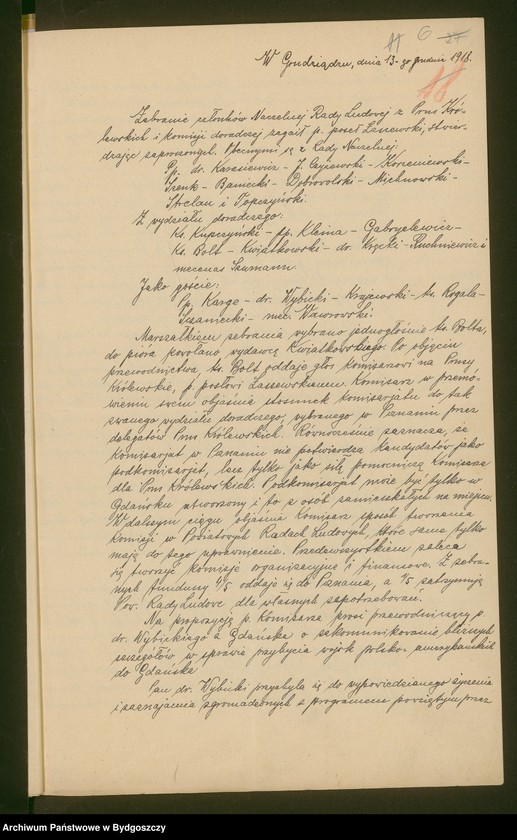 11 6 27
W Grudziądzu, dnia 13-go grudnia 1918.
18
Zebranie członków Naczelnej Rady Ludowej z Prus Kró-
lewskich i komisji doradczej zagaił p. poseł Łaszewski, stwier-
dzając zaproszonych. Obecnymi są z Rady Naczelnej:
Pp. dr. Karasiewicz - J. Czyżewski - Korzeniewski -
Szenk - Baniecki - Dobrowolski - Michnowski -
Strelau i Topczyński.
Z wydziału doradczego:
Ks. Kupczyński - pp. Kleina - Gabryelewicz -
Ks. Bolt - Kwiatkowski - dr. Krzęcki - Ruchniewicz i
mecenas Szumann.
Jako goście:
Pp. Karge - dr. Wybicki - Krajewski - ks. Rogala -
Szaniecki - mec. Wawrowski.
Marszałkiem zebrania wybrano jednogłośnie ks. Bolta,
do pióra powołano wydawcę Kwiatkowskiego. Po objęciu
przewodnictwa, ks. Bolt oddaje głos komisarzowi na Prusy
Królewskie, p. posłowi Łaszewskiemu. Komisarz w przemó-
wieniu swem objaśnia stosunek komisarjatu do tak
zwanego wydziału doradczego, wybranego w Poznaniu przez
delegatów Prus Królewskich. Równocześnie zaznacza, że
Komisarjat w Poznaniu nie potwierdza kandydatów jako
podkomisarjat, lecz tylko jako siłę pomocniczą Komisarza
dla Prus Królewskich. Podkomisarjat może być tylko w
Gdańsku utworzony i to z osób zamieszkałych na miejscu.
W dalszym ciągu objaśnia Komisarz sposób tworzenia
Komisji w Powiatowych Radach Ludowych, które same tylko
mają do tego uprawnienie. Przedewszystkiem zaleca
się tworzyć komisje organizacyjne i finansowe. Z zebra-
nych funduszy 4/5 oddaje się do Poznania, a 1/5 zatrzymują
Pow. Rady Ludowe dla własnych zapotrzebowań.
Na propozycję p. Komisarza prosi przewodniczący p.
dr. Wybickiego z Gdańska o zakomunikowanie bliższych
szczegółów w sprawie przybycia wojsk polsko-amerykańskich
do Gdańska.
Pan dr. Wybicki przychyla się do wypowiedzianego życzenia
i zaznajamia zgromadzonych z programem powziętym przez
Archiwum Państwowe w Bydgoszczy